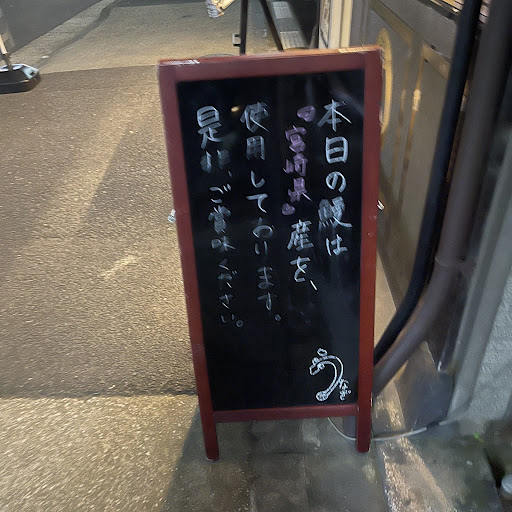 本日の鰻は
『宮崎県』産を、
使用しております。
是非、ご賞味ください。
うなぎ